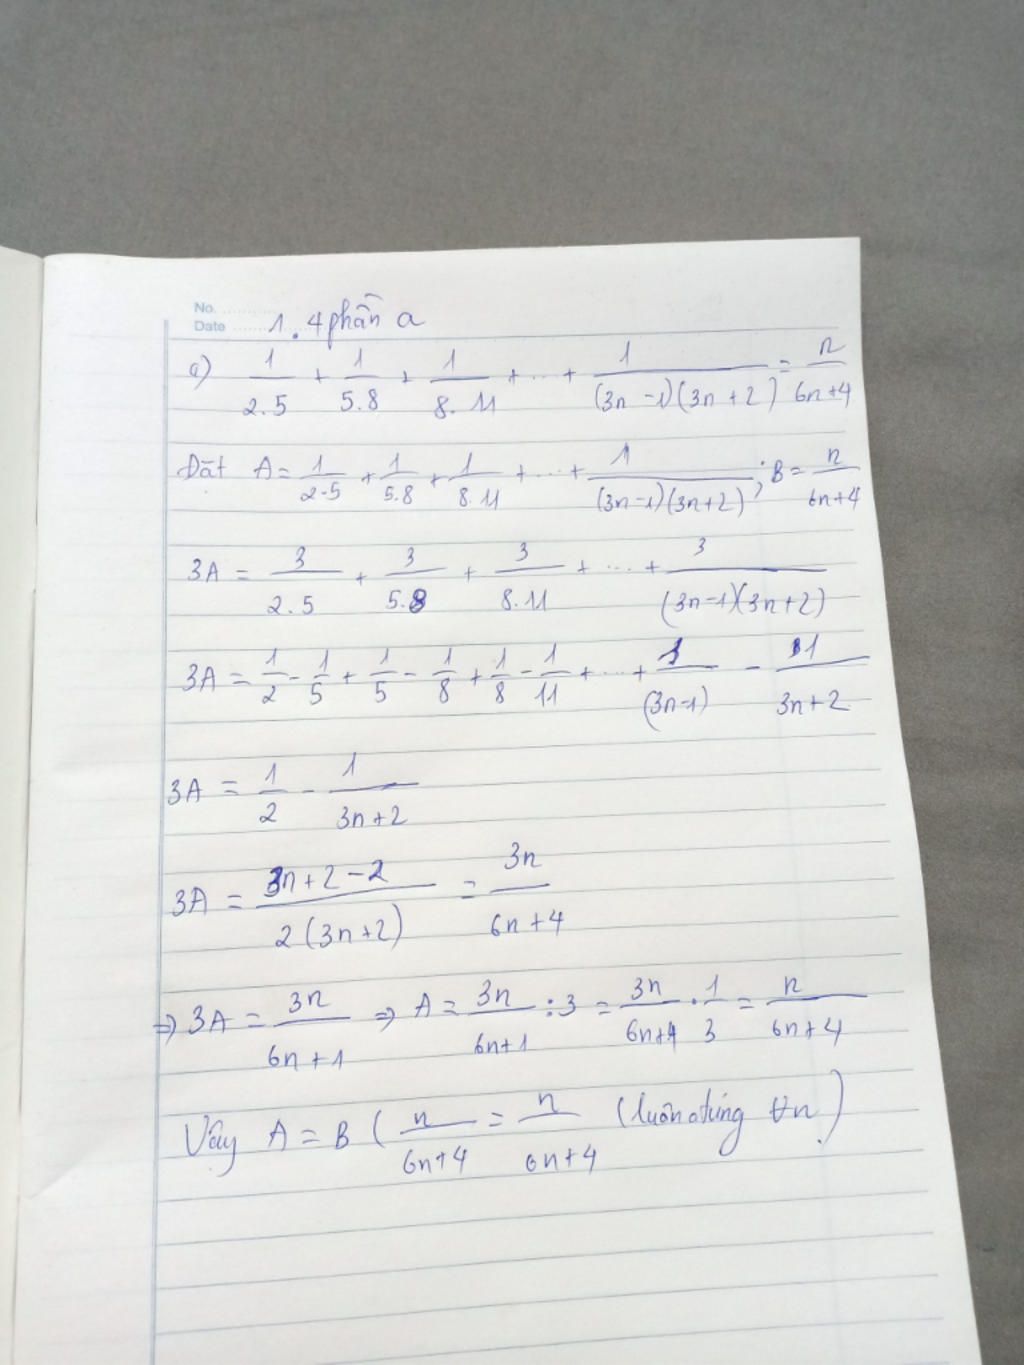 No. ..........
Date ..........
1.4 phần a
a) 1/2.5 + 1/5.8 + 1/8.11 + ... + 1/(3n-1)(3n+2) = n/6n+4
Đăt A = 1/2.5 + 1/5.8 + 1/8.11 + ... + 1/(3n-1)(3n+2) ; B = n/6n+4
3A = 3/2.5 + 3/5.8 + 3/8.11 + ... + 3/(3n-1)(3n+2)
3A = 1/2 - 1/5 + 1/5 - 1/8 + 1/8 - 1/11 + ... + 1/(3n-1) - 1/3n+2
3A = 1/2 - 1/3n+2
3A = 3n+2-2/2(3n+2) = 3n/6n+4
⇒ 3A = 3n/6n+1 ⇒ A = 3n/6n+1 : 3 = 3n/6n+4 . 1/3 = n/6n+4
Vậy A = B ( n/6n+4 = n/6n+4 (luôn đúng ∀n)